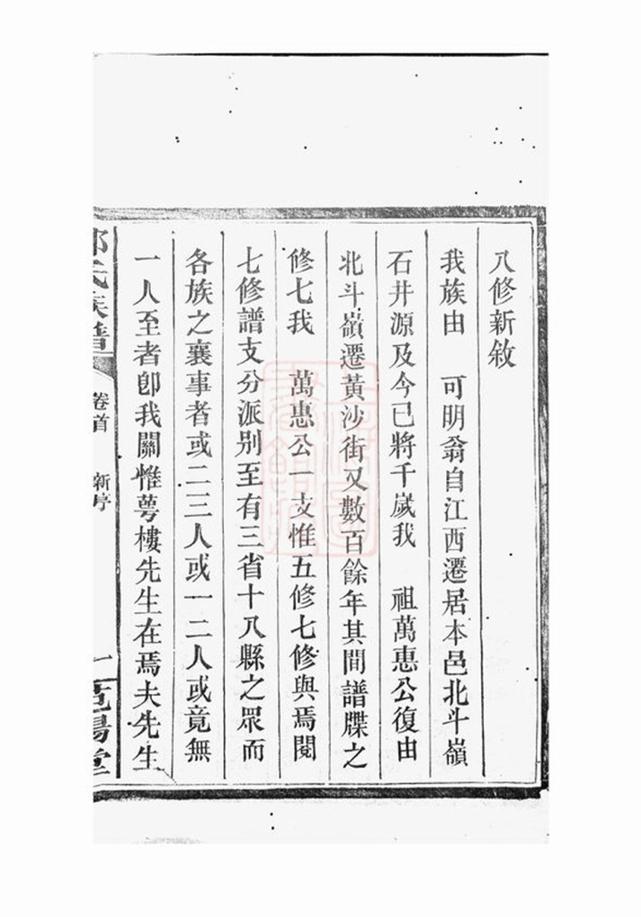 八修新敘
我族由　可明翁自江西遷居本邑北斗嶺
石井源及今已將千歲我　祖萬惠公復由
北斗嶺遷黃沙街又數百餘年其間譜牒之
修七我　萬惠公一支惟五修七修與焉閱
七修譜支分派別至有三省十八縣之眾而
各族之襄事者或二三人或一二人或竟無
一人至者卽我關惟萼樓先生在焉夫先生
氏族譜
卷首
新序
一
堂